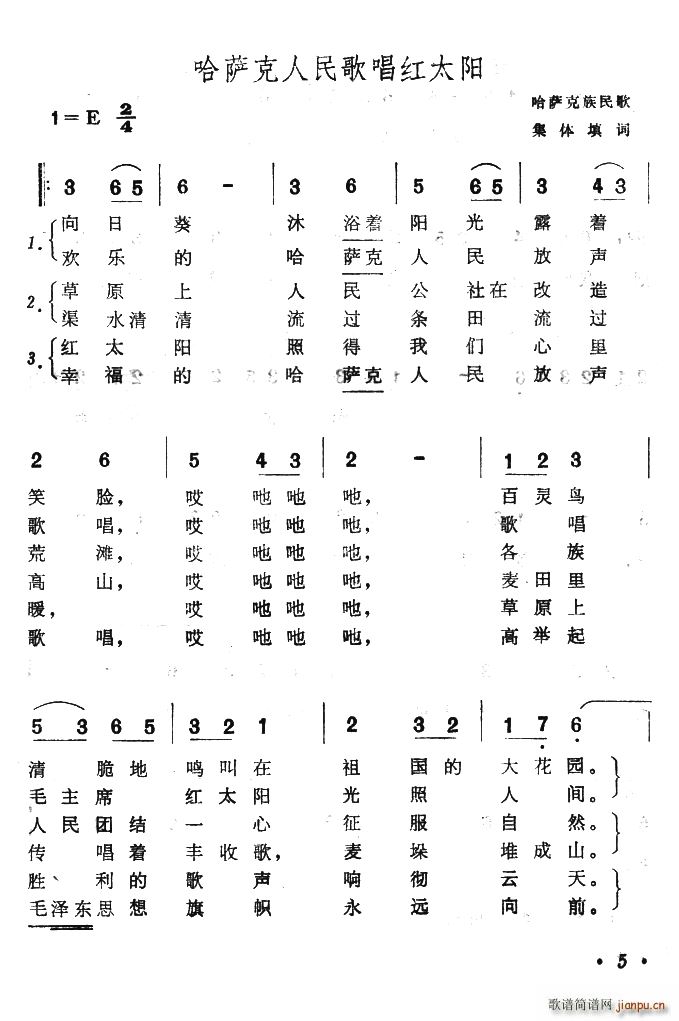 哈萨克人民歌唱红太阳
1=E 2/4
哈萨克族民歌
集体填词
3 6 5 6 - 3 6 5 6 5 3 4 3
1. 向日葵 沐浴着阳光露着
欢乐的 哈萨克人民放声
2. 草原上 人民公社在改造
渠水清清 流过条田流过
3. 红太阳 照得我们心里
幸福的 哈萨克人民放声
2 6 5 4 3 2 - 1 2 3
笑脸, 哎吔吔吔, 百灵鸟
歌唱, 哎吔吔吔, 歌唱
荒滩, 哎吔吔吔, 各族
高山, 哎吔吔吔, 麦田里
暖, 哎吔吔吔, 草原上
歌唱, 哎吔吔吔, 高举起
5 3 6 5 3 2 1 2 3 2 1 7 6
清脆地鸣叫在祖国的大花园。
毛主席红太阳光照人间。
人民团结一心征服自然。
传唱着丰收歌,麦垛堆成山。
胜利的歌声响彻云天。
毛泽东思想旗帜永远向前。
• 5 •
歌谱简谱网
jianpu.cn